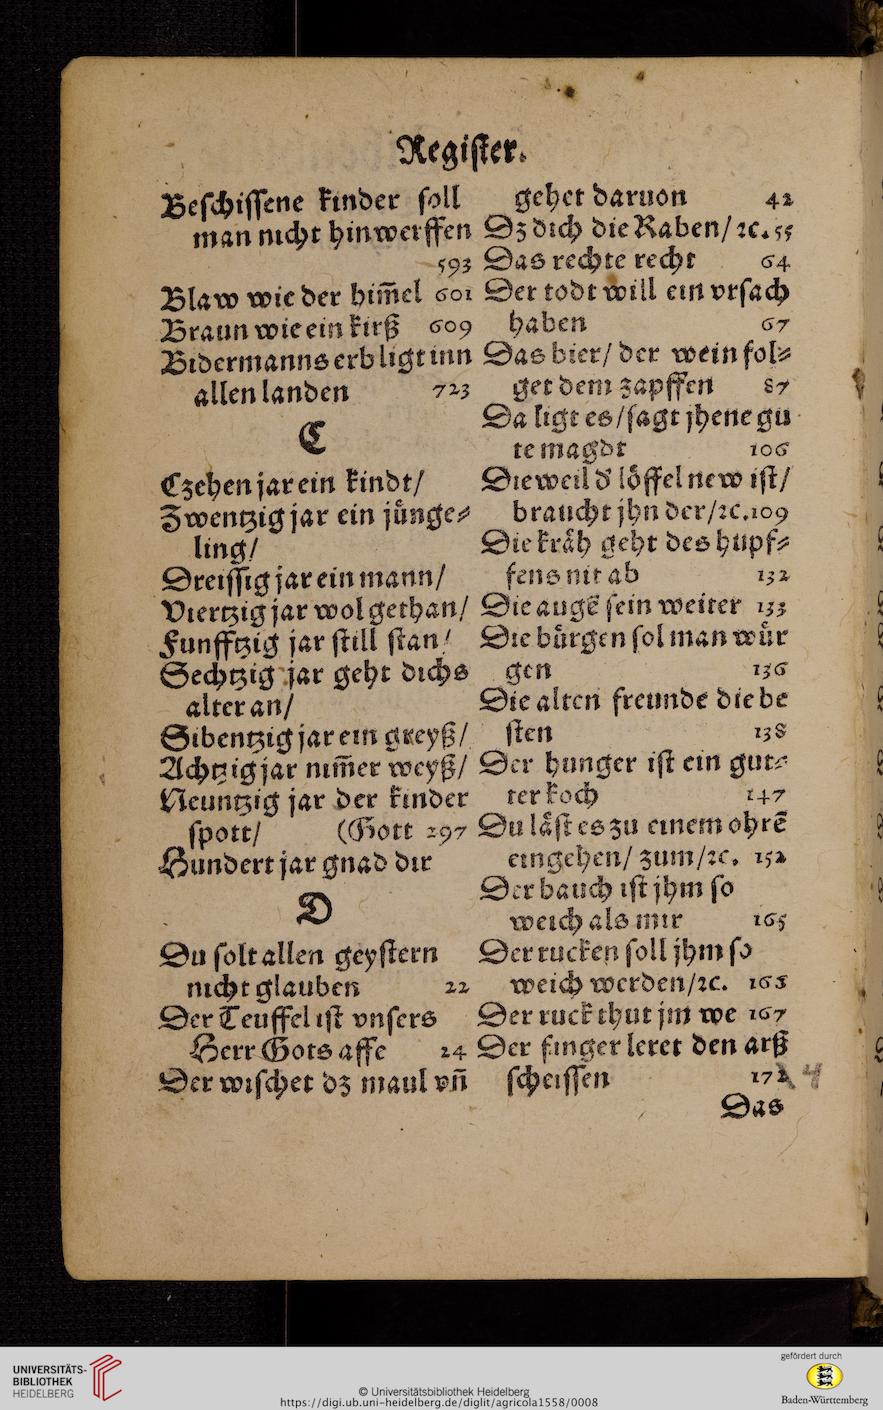 Register.
Beſchiſſene kinder ſoll
man nicht hinwerffen
593
Blaw wie der him̃el 601
Braun wie ein kirß 609
Bidermanns erb ligt inn
allen landen 723
C
Czehen jar ein kindt/
Zwentzig jar ein jünge⸗
ling/
Dreiſſig jar ein mann/
Viertzig jar wol gethan/
Funfftzig jar ſtill ſtan/
Sechtzig jar geht dichs
alter an/
Sibentzig jar ein greyß/
Achtzig jar nim̃er weyß/
Neuntzig jar der kinder
ſpott/ (Gott 297
Hundert jar gnad dir
D
Du ſolt allen geyſtern
nicht glauben 22
Der Teuffel iſt vnſers
Herr Gots affe 24
Der wiſchet dz maul vñ
gehet daruon 42
Dz dich die Raben/ ꝛc. 55
Das rechte recht 64
Der todt will ein vrſach
haben 67
Das bier/ der wein fol⸗
get dem zapffen 87
Da ligt es/ ſagt jhene gu
te magdt 106
Die weil d' löffel new iſt/
braucht jhn der/ꝛc. 109
Die kräh geht des hüpf⸗
fens nit ab 132
Die augẽ ſein weiter 133
Die bürgen ſol man wür
gen 136
Die alten freunde die be
ſten 138
Der hunger iſt ein gut⸗
ter koch 147
Du läſt es zu einem ohrẽ
eingehen/ zum/ꝛc. 152
Der bauch iſt jhm ſo
weich als mir 165
Der rucken ſoll jhm ſo
weich werden/ꝛc. 165
Der ruck thut jm we 167
Der finger leret den arß
ſcheiſſen 172 4
Das
UNIVERSITÄTS-
BIBLIOTHEK
HEIDELBERG
© Universitätsbibliothek Heidelberg
https://digi.ub.uni-heidelberg.de/diglit/agricola1558/0008
gefördert durch
Baden-Württemberg